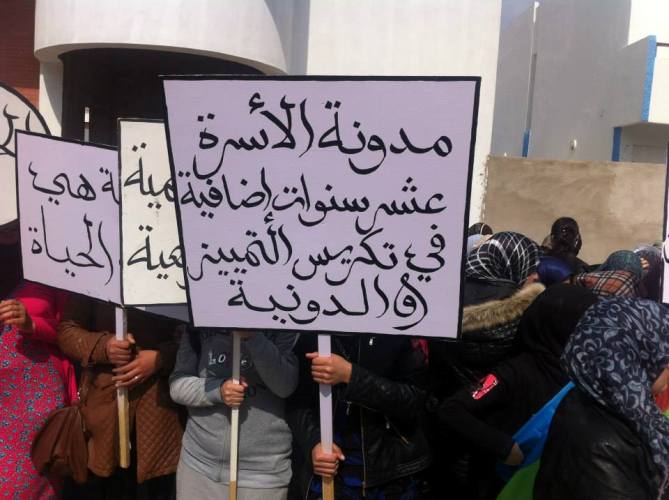 مدونة الأسرة
عشر سنوات إضافية
في تكريس التمييز
و الدونية
هي
الحياة